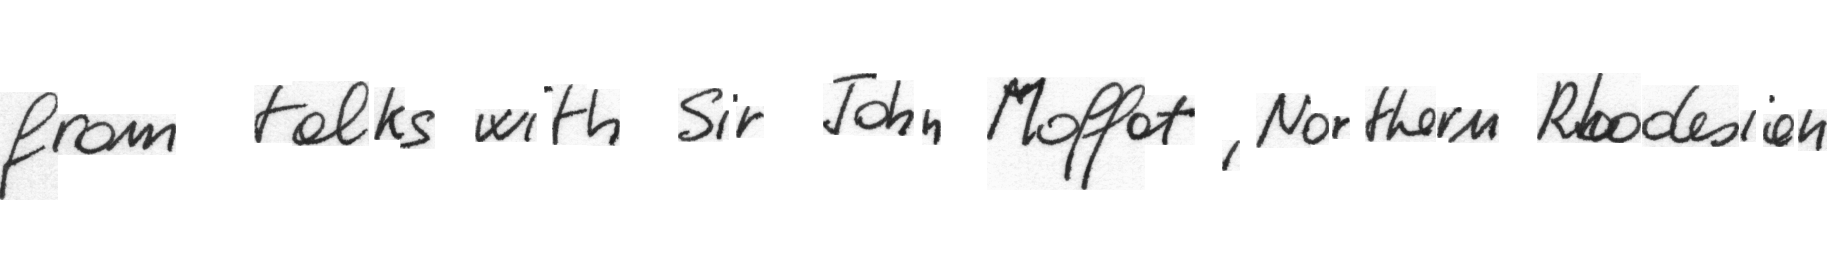 from talks with Sir John Moffat, Northern Rhodesian